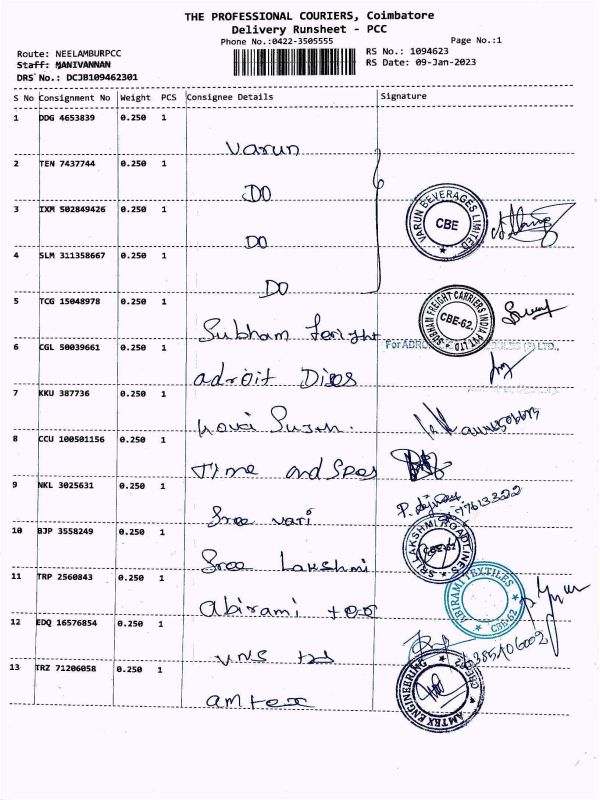 THE PROFESSIONAL COURIERS, Coimbatore
Delivery Runsheet - PCC
Phone No.:0422-3505555
Page No.:1
Route: NEELAMBURPCC
RS No.: 1094623
Staff: MANIVANNAN
RS Date: 09-Jan-2023
DRS No.: DCJB109462301
S No Consignment No Weight PCS Consignee Details Signature
1 DDG 4653839 0.250 1
Varun
2 TEN 7437744 0.250 1
DO
3 IXM 502849426 0.250 1
DO
VARUN BEVERAGES LIMITED
CBE
4 SLM 311358667 0.250 1
DO
5 TCG 15048978 0.250 1
Subham freight
SUBHAM FREIGHT CARRIERS INDIA PVT LTD
CBE-62
6 CGL 50039661 0.250 1
For ADRO
adroit Dies
7 KKU 387736 0.250 1
8 CCU 100501156 0.250 1
Time and
9 NKL 3025631 0.250 1
Sree vari
10 BJP 3558249 0.250 1
Sree Lakshmi
SRI LAKSHMI ROADLINES
CBE-62
11 TRP 2560843 0.250 1
Abirami tex
ABIRAMI TEXTILES
CBE-62
12 EDQ 16576854 0.250 1
13 TRZ 71206058 0.250 1
amtex
AMTEX ENGINEERING